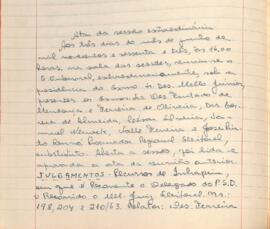 Ata da sessão extraordinária
Aos três dias do mês de junho de
mil novecentos e sessenta e três, às 14,00
horas, na sala das sessões, reuniu-se o
T. Eleitoral, extraordinariamente, sob a
presidência do Exmo Sr. Des. Mello Júnior,
presentes os Exmos Srs. Des. Furtado de
Mendonça e Ferreira de Oliveira, Drs.
de Almeida, Edson
Valle Ferreira e José
Procurador Regional Eleitoral,
substituto. Aberta a sessão, foi lida e
aprovada a ata da reunião anterior.
JULGAMENTOS - Recursos de
em que é Recorrente o Delegado do P.S.D.
e Recorrido o MM. Juiz Eleitoral. Nrs.:
198, 204 e 210/63. Relator: Des. Ferreira